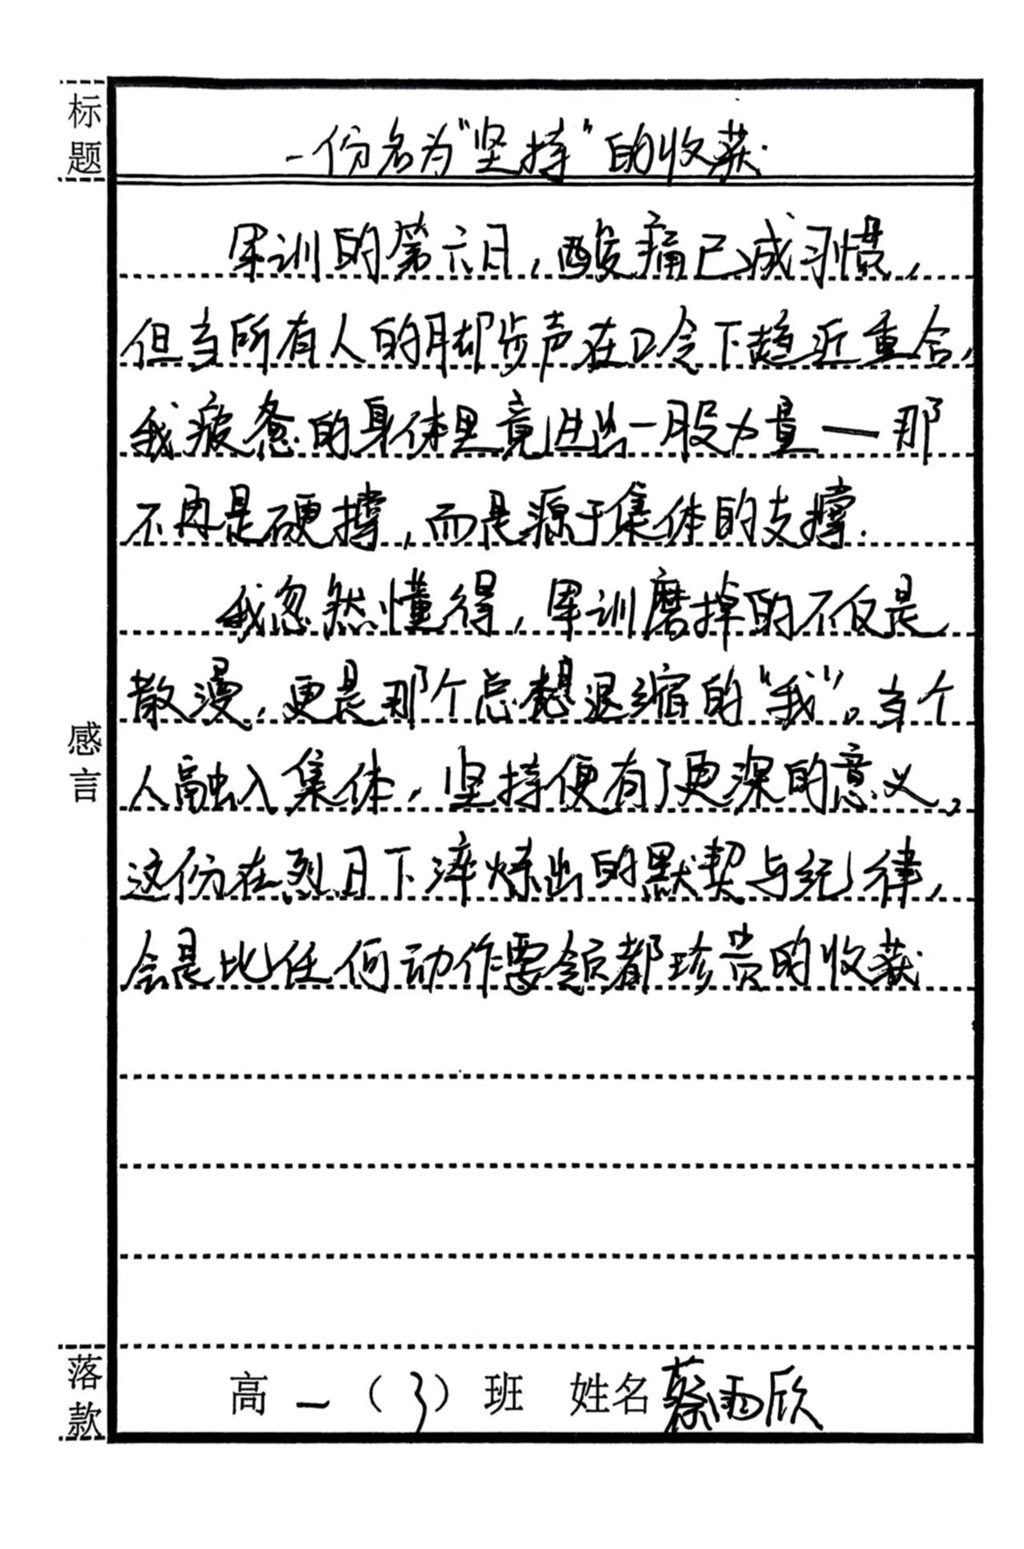 标题
一份名为“坚持”的收获
军训的第六日，酸痛已成习惯，
但当所有人的脚步声在口令下趋近重合，
我疲惫的身体里竟迸出一股力量——那
不再是硬撑，而是源于集体的支撑.
我忽然懂得，军训磨掉的不仅是
散漫，更是那个总想退缩的“我”。当个
人融入集体，坚持便有了更深的意义，
感言
这份在烈日下淬炼出的默契与纪律，
会是比任何动作要领都珍贵的收获
落款
高一（3）班 姓名 蔡雨欣